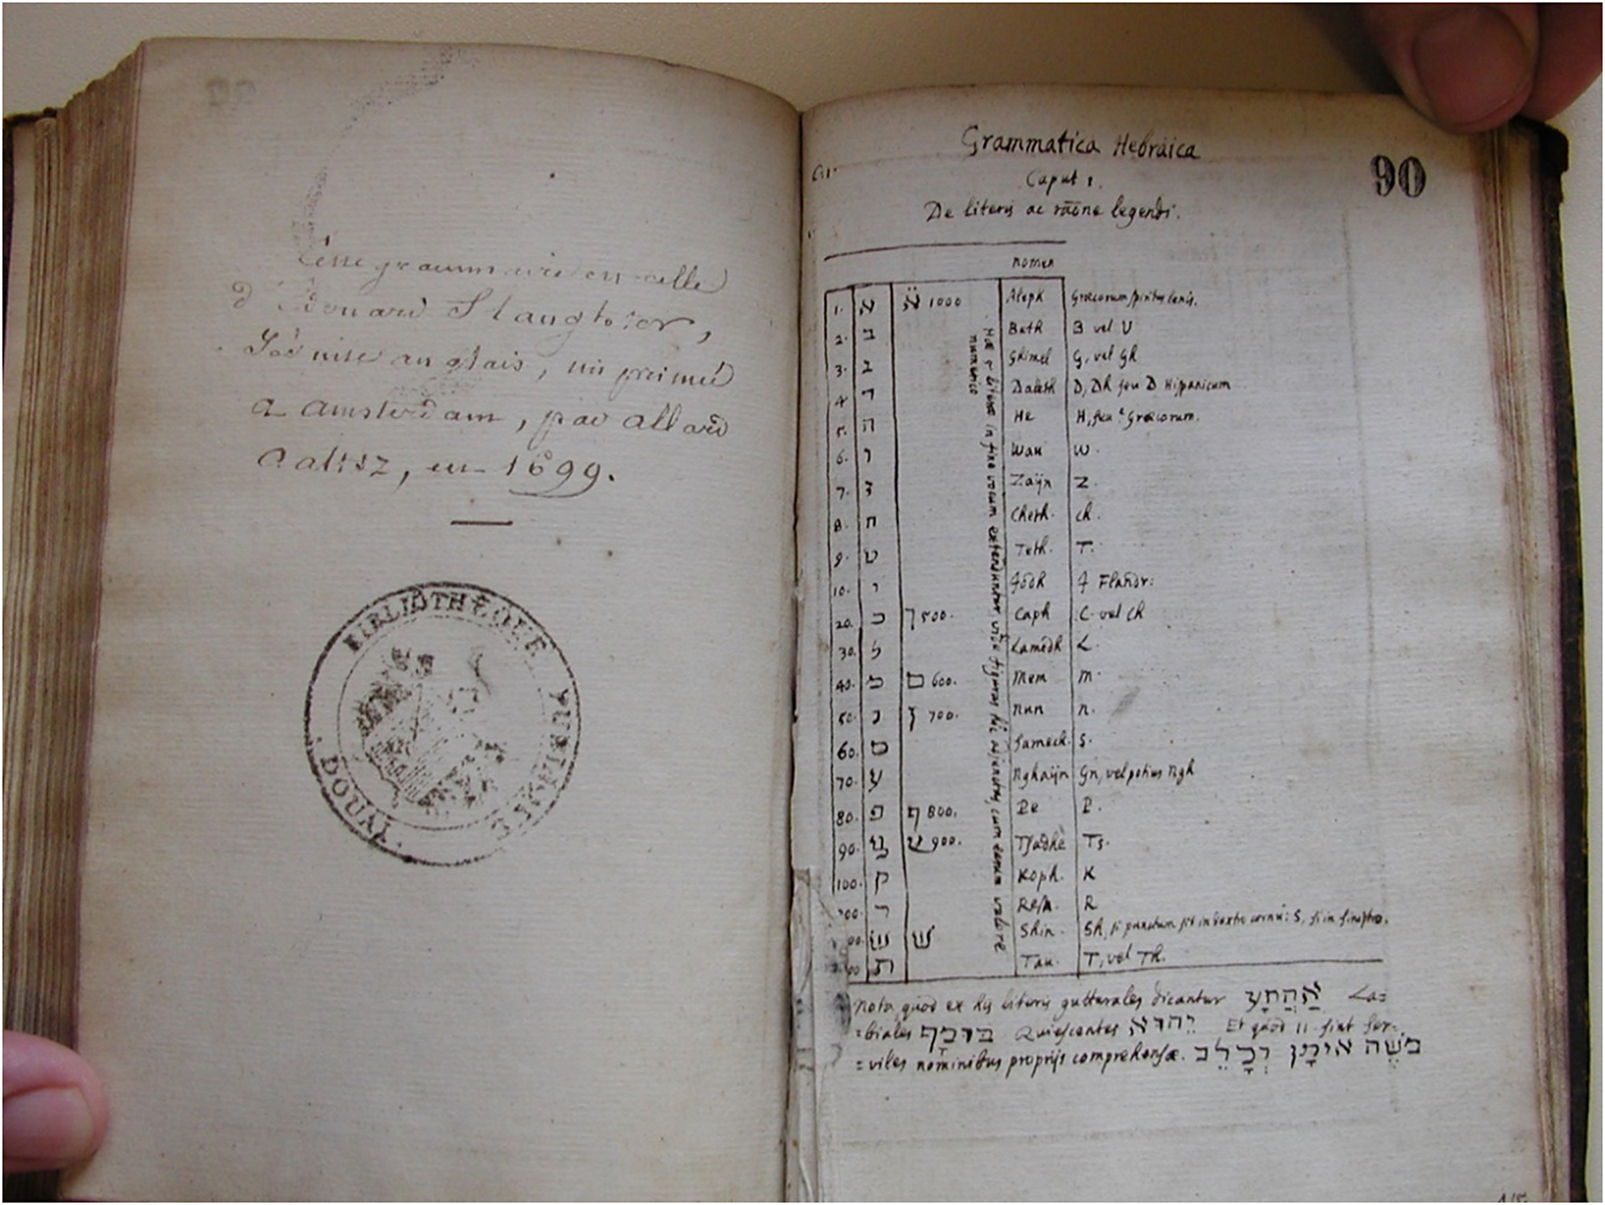 Cette grammaire est celle
d'Edouard Slaughter,
Jésuite anglais, imprimée
a amsterdam, par allard
aaltsz, en 1699.
BIBLIOTHÈQUE PUBLIQUE
DOUAY.
90
Grammatica Hebraica
Caput 1.
De literis ac raōne legendi.
nomen
1. א א̈ 1000 Aleph Græcorum spiritus lenis.
2. ב Beth B vel V
3. ג Ghimel G, vel Gh
4. ד Daleth D, Dh seu D Hispanicum
5. ה He H, seu Græcorum.
6. ו Wau W.
7. ז Zaijn Z.
8. ח Cheth. ch.
9. ט Teth. T.
10. י Jodh J Flandr:
20. כ ך 500. Caph C vel ch
30. ל Lamedh L.
40. מ ם 600. Mem m.
50. נ ן 700. nun n.
60. ס Samech. S.
70. ע Nghaijn Gn, vel potius ngh
80. פ ף 800. Pe P.
90. צ ץ 900. Tsadhè Ts.
100. ק Koph. K
ר Resh. R
ש שׁ Shin. Sh, si punctum sit in dextro cornu: S, si in sinistro.
ת Tau. T, vel Th.
Hæ 5 literæ in fine vocum extenduntur vide figuras hîc adjunctas, cum earum valore
numerico
Nota quod ex his literis gutturales dicantur אַהֲחָע La=
=biales בּוּמַף Quiescentes יֵהוּא Et quod 11 sint ser=
=viles nominibus proprijs comprehensæ. מֹשֶׁה אֵיתָן וְכָלֵב